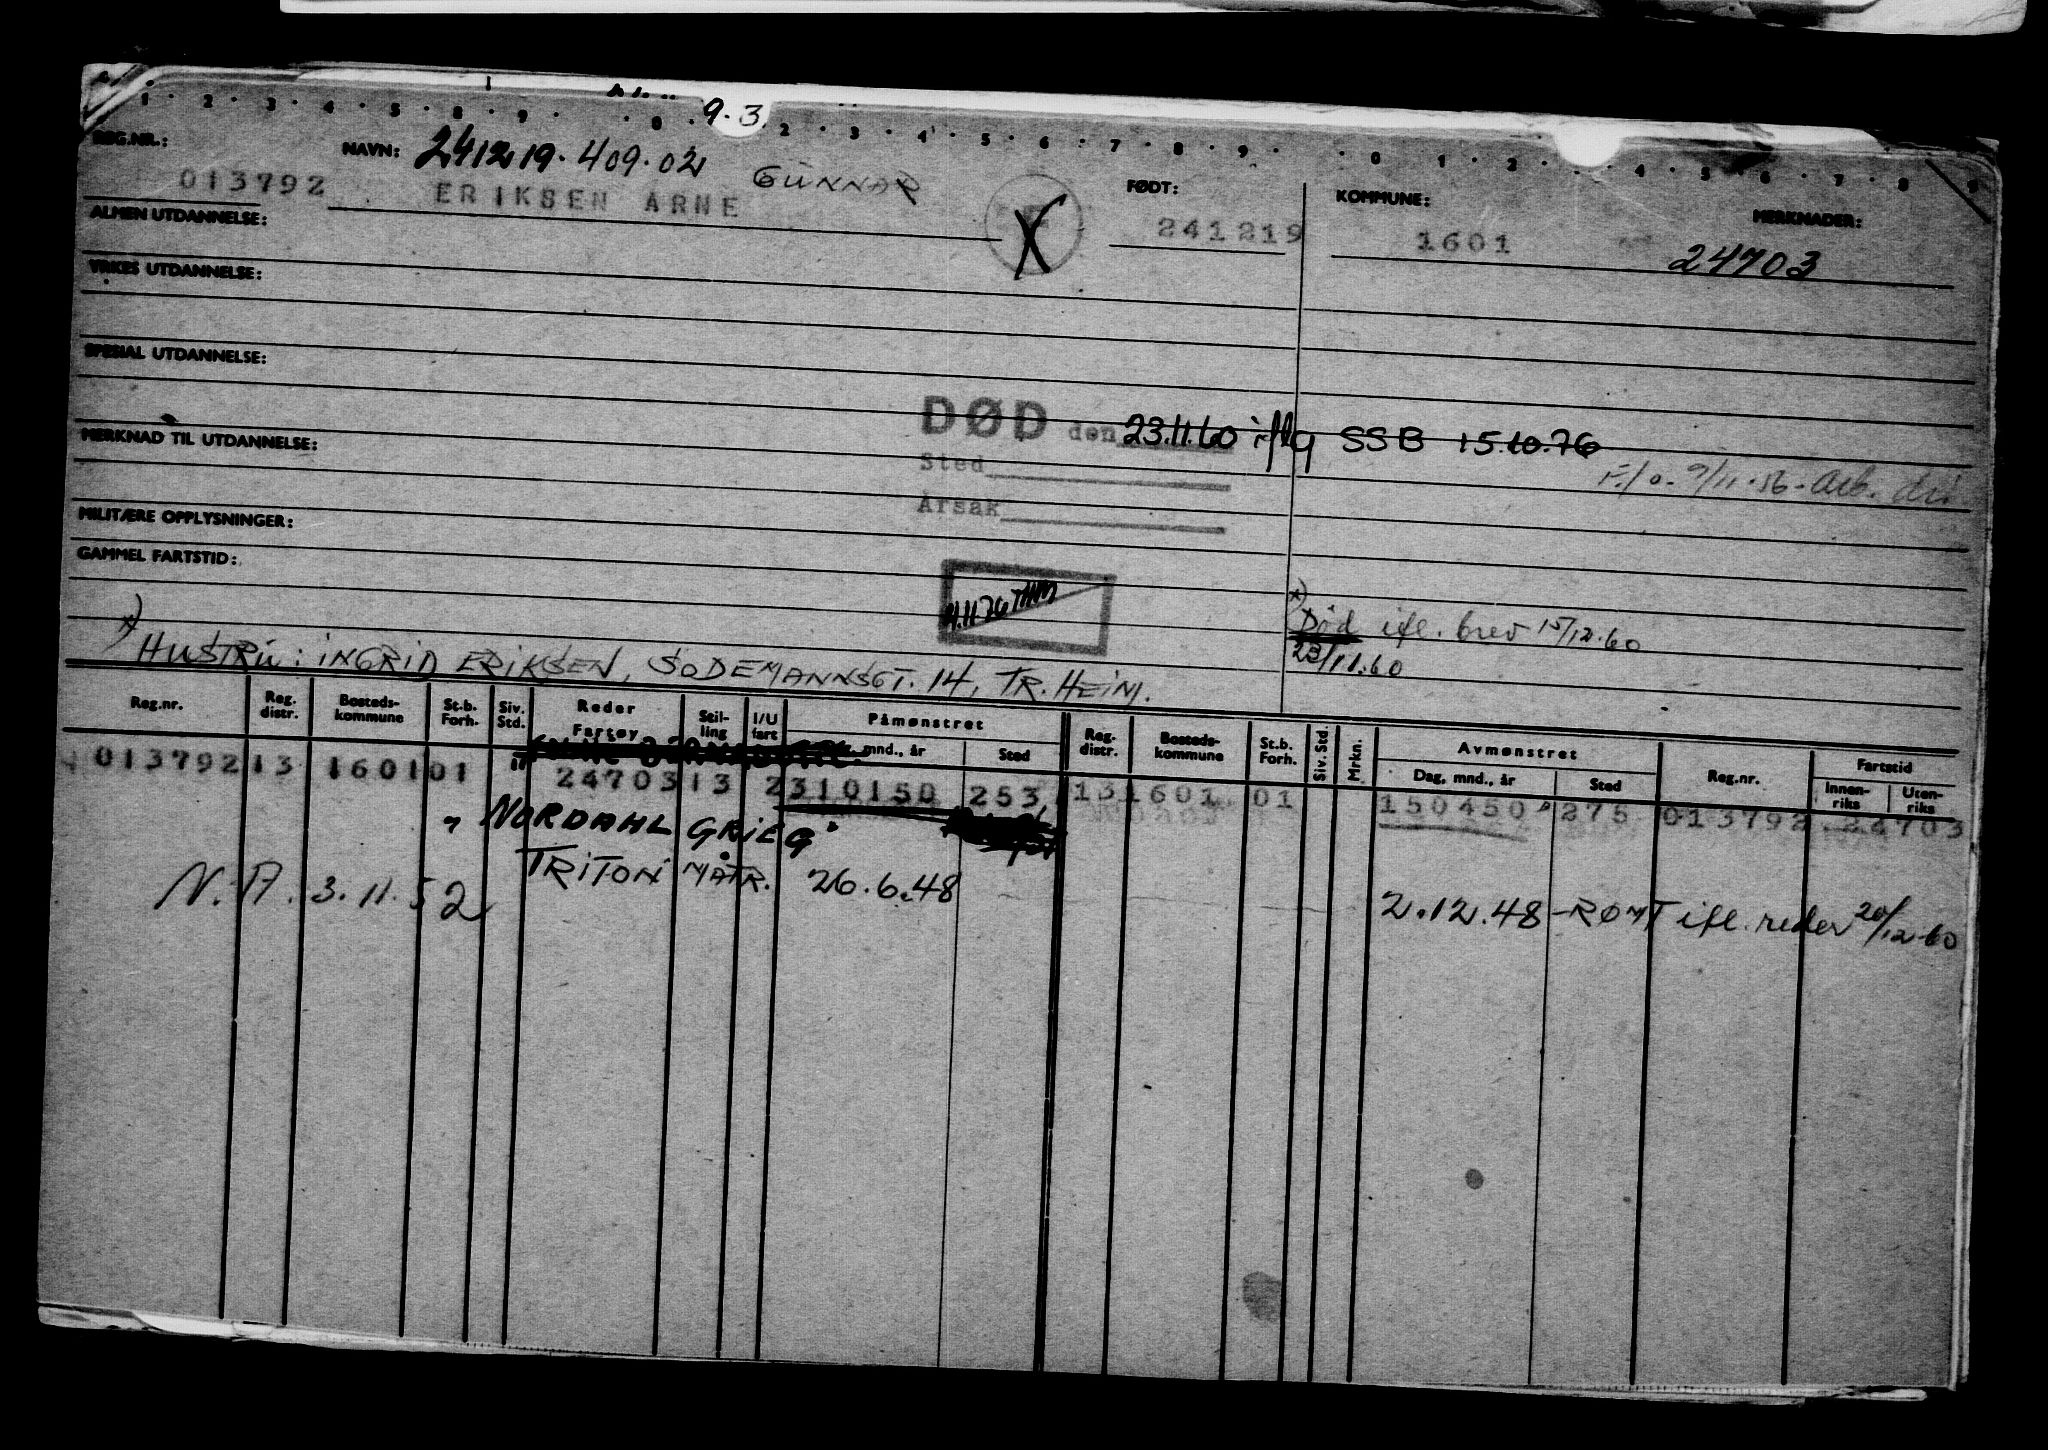 1 · 2 · 3 · 4 · 5 · 8 · 9 · · 0 · 9.3. 2 · 3 · 4 · 5 · 6 · 7 · 8 · 9 · · 0 1 · 2 · · 4 · 5 · 6 · 7 · 8 9
REG.NR.: NAVN: 241219.409.02 FØDT: KOMMUNE: MERKNADER:
013792 ERIKSEN ARNE GUNNAR 241219 1601 24703
ALMEN UTDANNELSE:
YRKES UTDANNELSE:
SPESIAL UTDANNELSE:
DØD den 23.11.60 iflg SSB 15.10.76
MERKNAD TIL UTDANNELSE:
Sted F/o. 9/11.56. Arb. dir.
Årsak
MILITÆRE OPPLYSNINGER:
GAMMEL FARTSTID:
11.11.76
x) Død ifl. brev 15/12.60
23/11.60
x) HUSTRU: INGRID ERIKSEN, SODEMANNSGT. 14, TR.HEIM.
Reg.nr. Reg. distr. Bosteds-kommune St.b. Forh. Siv. Std. Reder Fartøy Stil-ling I/U fart Påmønstret mnd., år Sted Reg. distr. Bosteds-kommune St.b. Forh. Siv. Std. Mrkn. Avmønstret Dag, mnd., år Sted Reg.nr. Fartstid Innen-riks Uten-riks
013792 13 1601 01 24703 13 2 310150 253 13 1601 01 150450 275 013792 24703
" NORDAHL GRIEG"
N.A. 3.11.52 TRITON MATR. 26.6.48 2.12.48 - RØMT ifl. reder 20/12.60